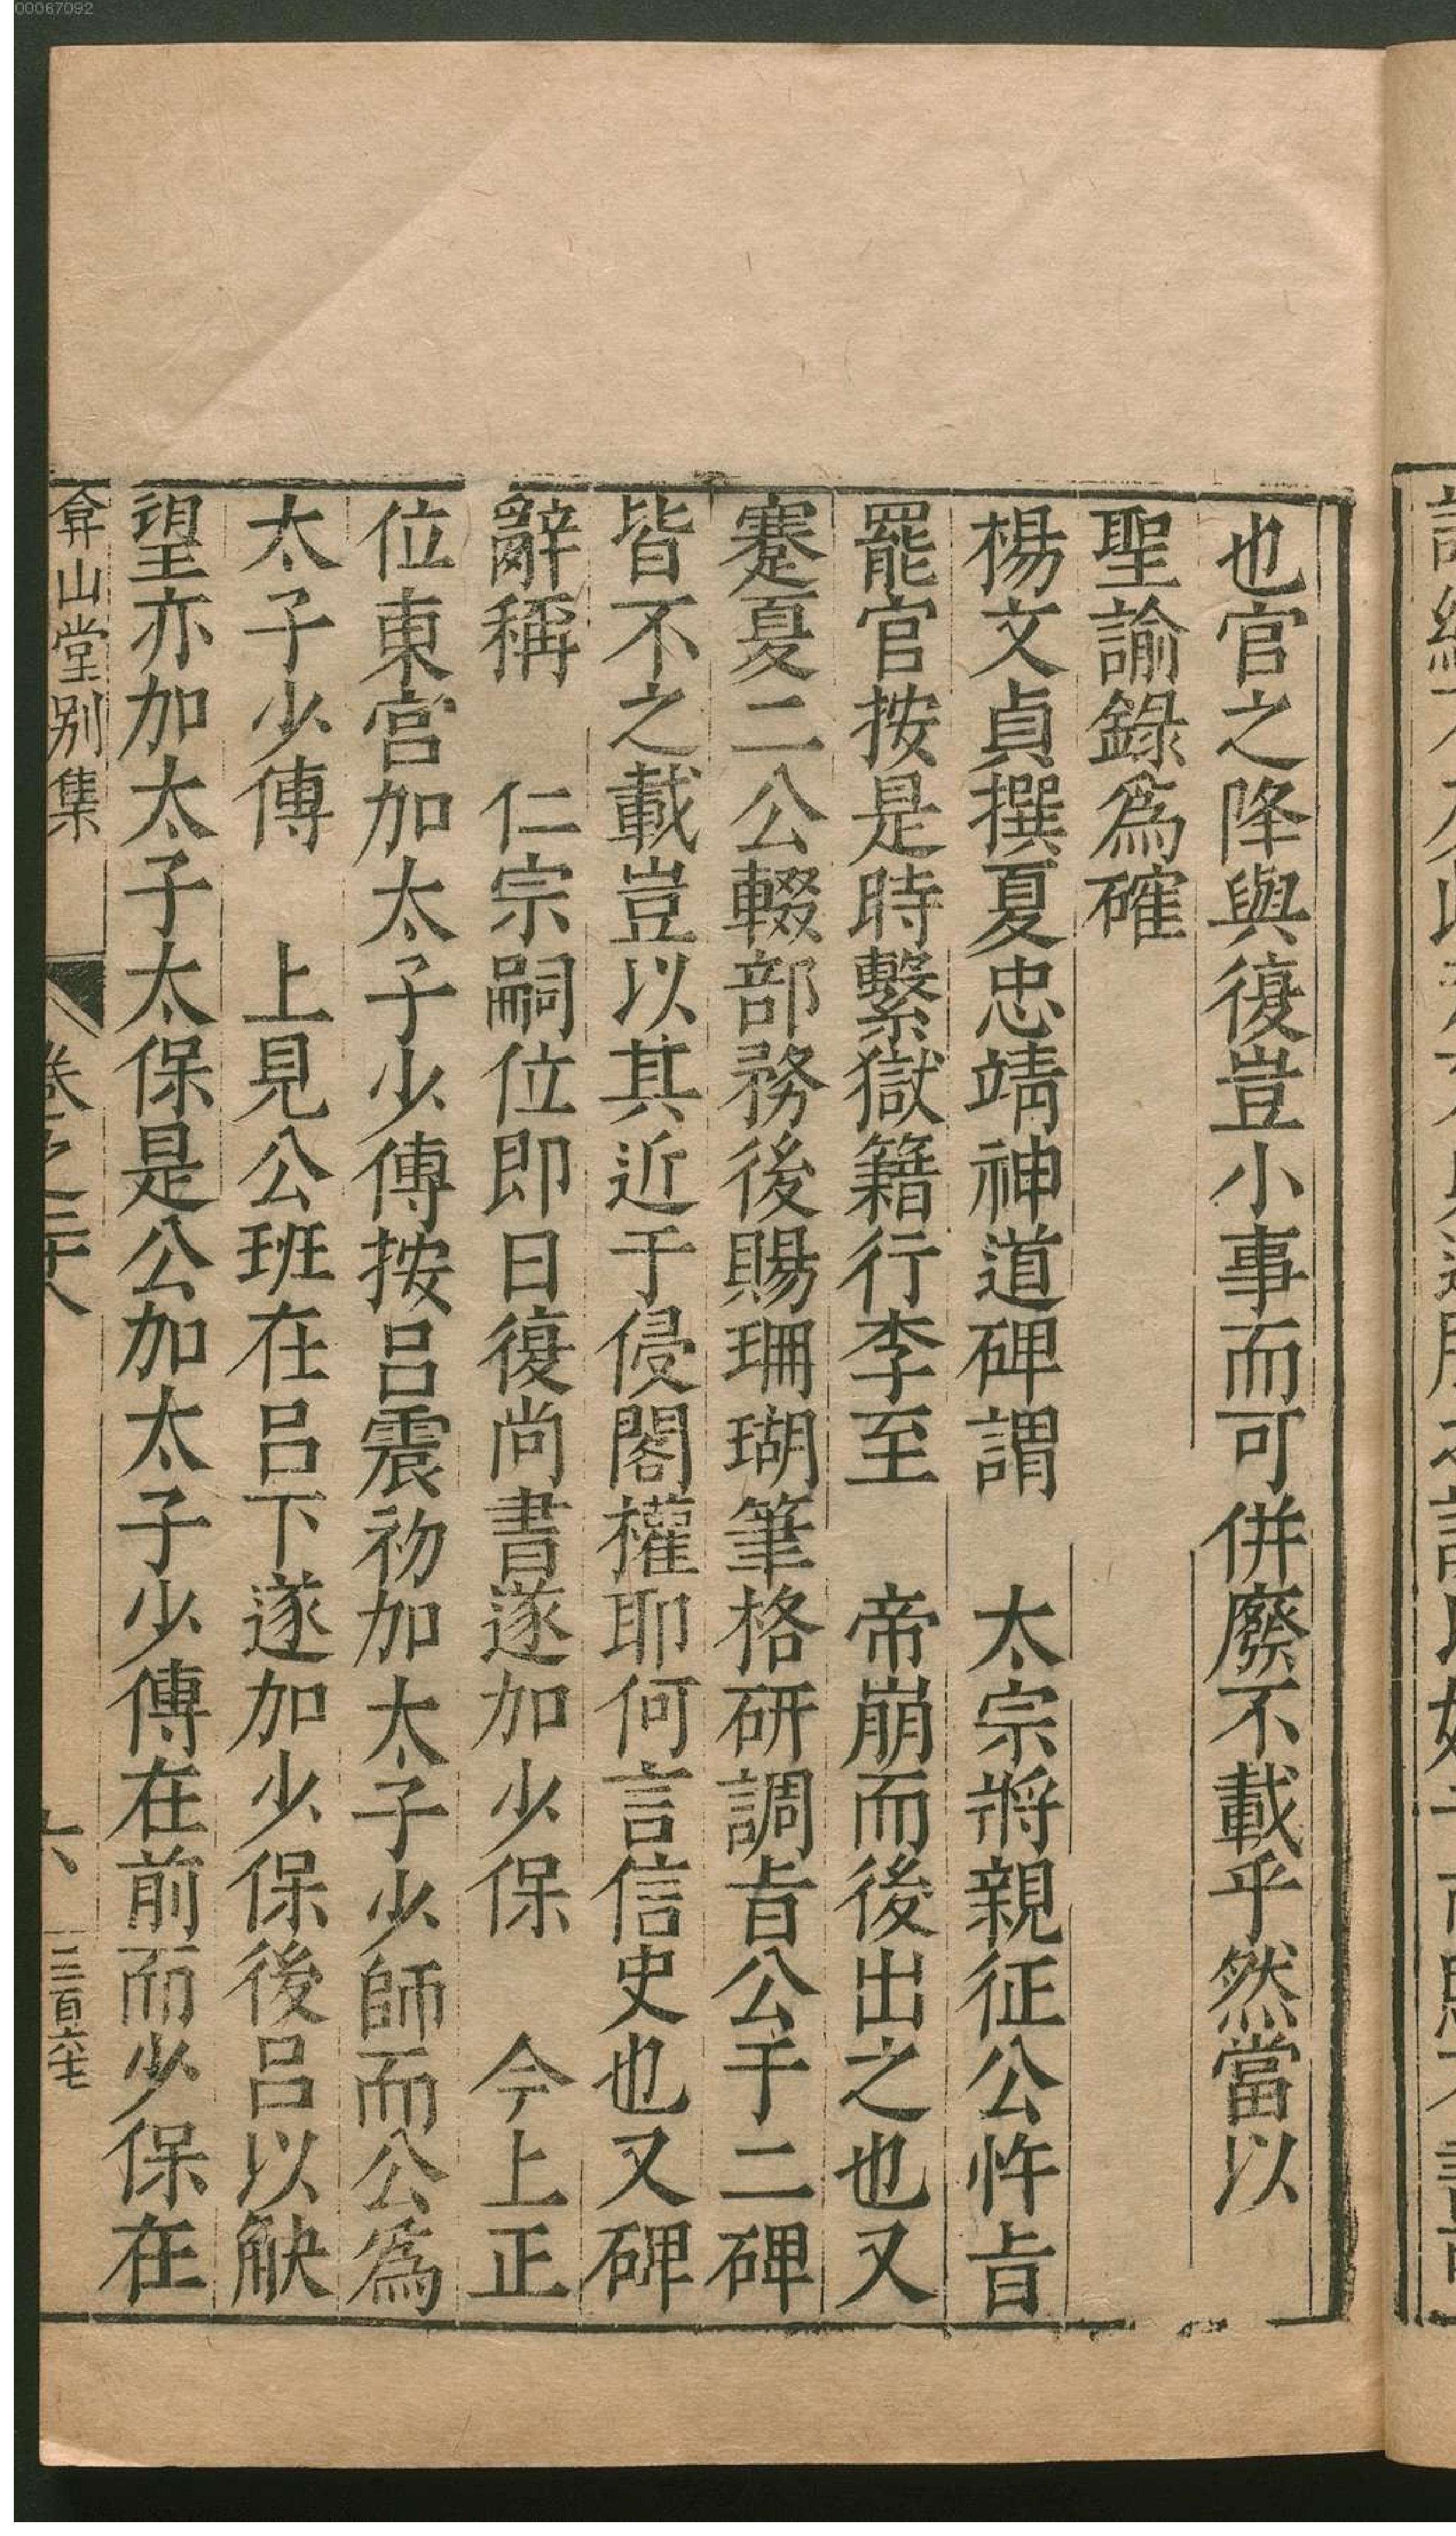 00067092
也官之降與復豈小事而可併廢不載乎然當以
聖諭錄爲確
楊文貞撰夏忠靖神道碑謂　太宗將親征公忤旨
罷官按是時繫獄籍行李至　帝崩而後出之也又
蹇夏二公輟部務後賜珊瑚筆格研調旨公于二碑
皆不之載豈以其近于侵閣權耶何言信史也又碑
辭稱　仁宗嗣位即日復尚書遂加少保　今上正
位東宮加太子少傅按呂震初加太子少師而公爲
太子少傅　上見公班在呂下遂加少保後呂以觖
望亦加太子太保是公加太子少傅在前而少保在
弇山堂別集
卷之二十八
六
三百六七